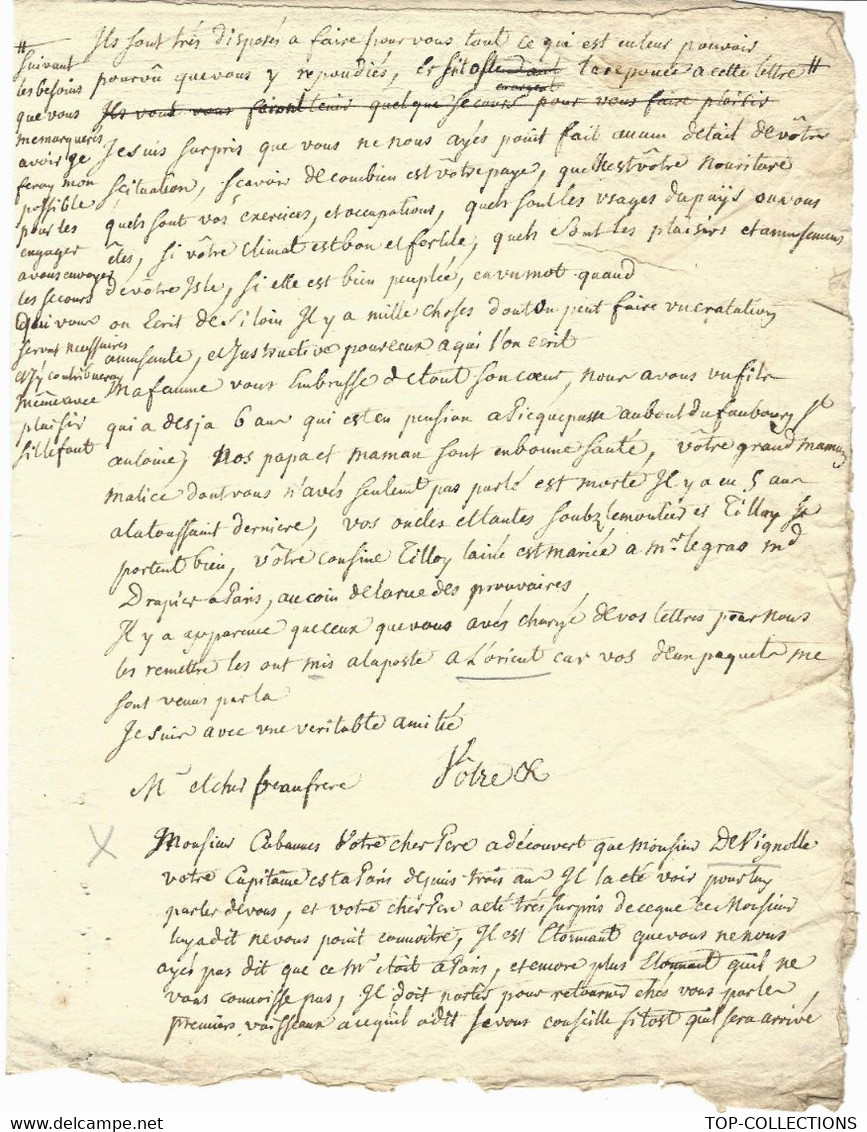 Ils sont trés disposés a faire pour vous tout ce qui est en leur pouvoir
pourvû que vous y repondiés, et sitost la reponce a cette lettre #
Ils vous vous feront tenir quelque secours pour vous faire plaisir
Je suis surpris que vous ne nous ayés point fait aucun detail de vôtre
scituation, sçavoir de combien est vôtre paye, quelle est vôtre nouriture
quels sont vos exercices, et occupations, quels sont les usages du païs ou vous
êtes, si vôtre climat est bon et fertile, quels sont les plaisirs et amusemens
de votre Isle, si elle est bien peuplée, en un mot quand
on Ecrit de si loin Il y a mille choses dont on peut faire une relation
amusante, et Instructive pour ceux a qui l'on ecrit
Ma femme vous Embrasse de tout son cœur, nous avons un fils
qui a desja 6 ans qui est en pension a Picquepusse au bout du faubourg St
antoine, Nos papa et maman sont en bonne santé, vôtre grand maman
malice dont vous n'avés seulement pas parlé est morte Il y a eu 5 ans
a la toussaint derniere, vos oncles et tantes et Tilloy se
portent bien, vôtre cousine Tilloy lainé est mariée a mr. le gras md
Drapier a Paris, au coin de la rue des prouvaires
Il y a apparence que ceux que vous avés chargé de vos lettres pour nous
les remettre les ont mis a la poste a L'orient car vos deux paquets me
sont venus par la
Je suis avec une veritable amitié
Mr et cher beaufrere Vôtre &
# suivant
les besoins
que vous
me marquerés
avoir je
feray mon
possible
pour les
engager
a vous envoyer
les secours
qui vous
seront necessaires
et J'y contribueray
même avec
plaisir
s'il le faut
X Monsieur Cabannes Votre cher Pere a découvert que monsieur De Vignolle
votre Capitaine est a Paris depuis trois ans Il l'a été voir pour luy
parler de vous, et votre cher Pere a été trés surpris de ce que ce Monsieur
luy a dit ne vous point connoître, Il est Etonnant que vous ne nous
ayés pas dit que ce Mr. étoit a Paris, et encore plus Etonnant qu'il ne
vous connoisse pas, Il doit partir pour retourner chés vous par les
premiers vaisseaux a ce qu'il a dit Je vous conseille sitost qu'il sera arrivé
TOP-COLLECTIONS